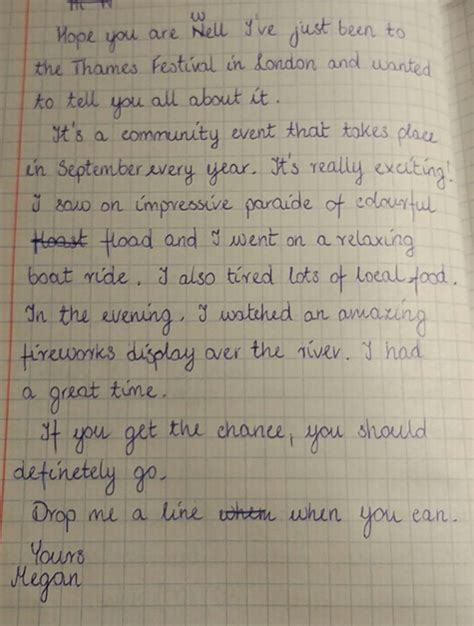 Hope you are Well I've just been to
the Thames Festival in London and wanted
to tell you all about it.
It's a community event that takes place
in September every year. It's really exciting!
I saw on impressive paraide of colourful
float flood and I went on a relaxing
boat ride. I also tired lots of local food.
In the evening. I watched an amazing
fireworks display over the river. I had
a great time.
If you get the chance, you should
definetely go.
Drop me a line whem when you can.
Yours
Megan